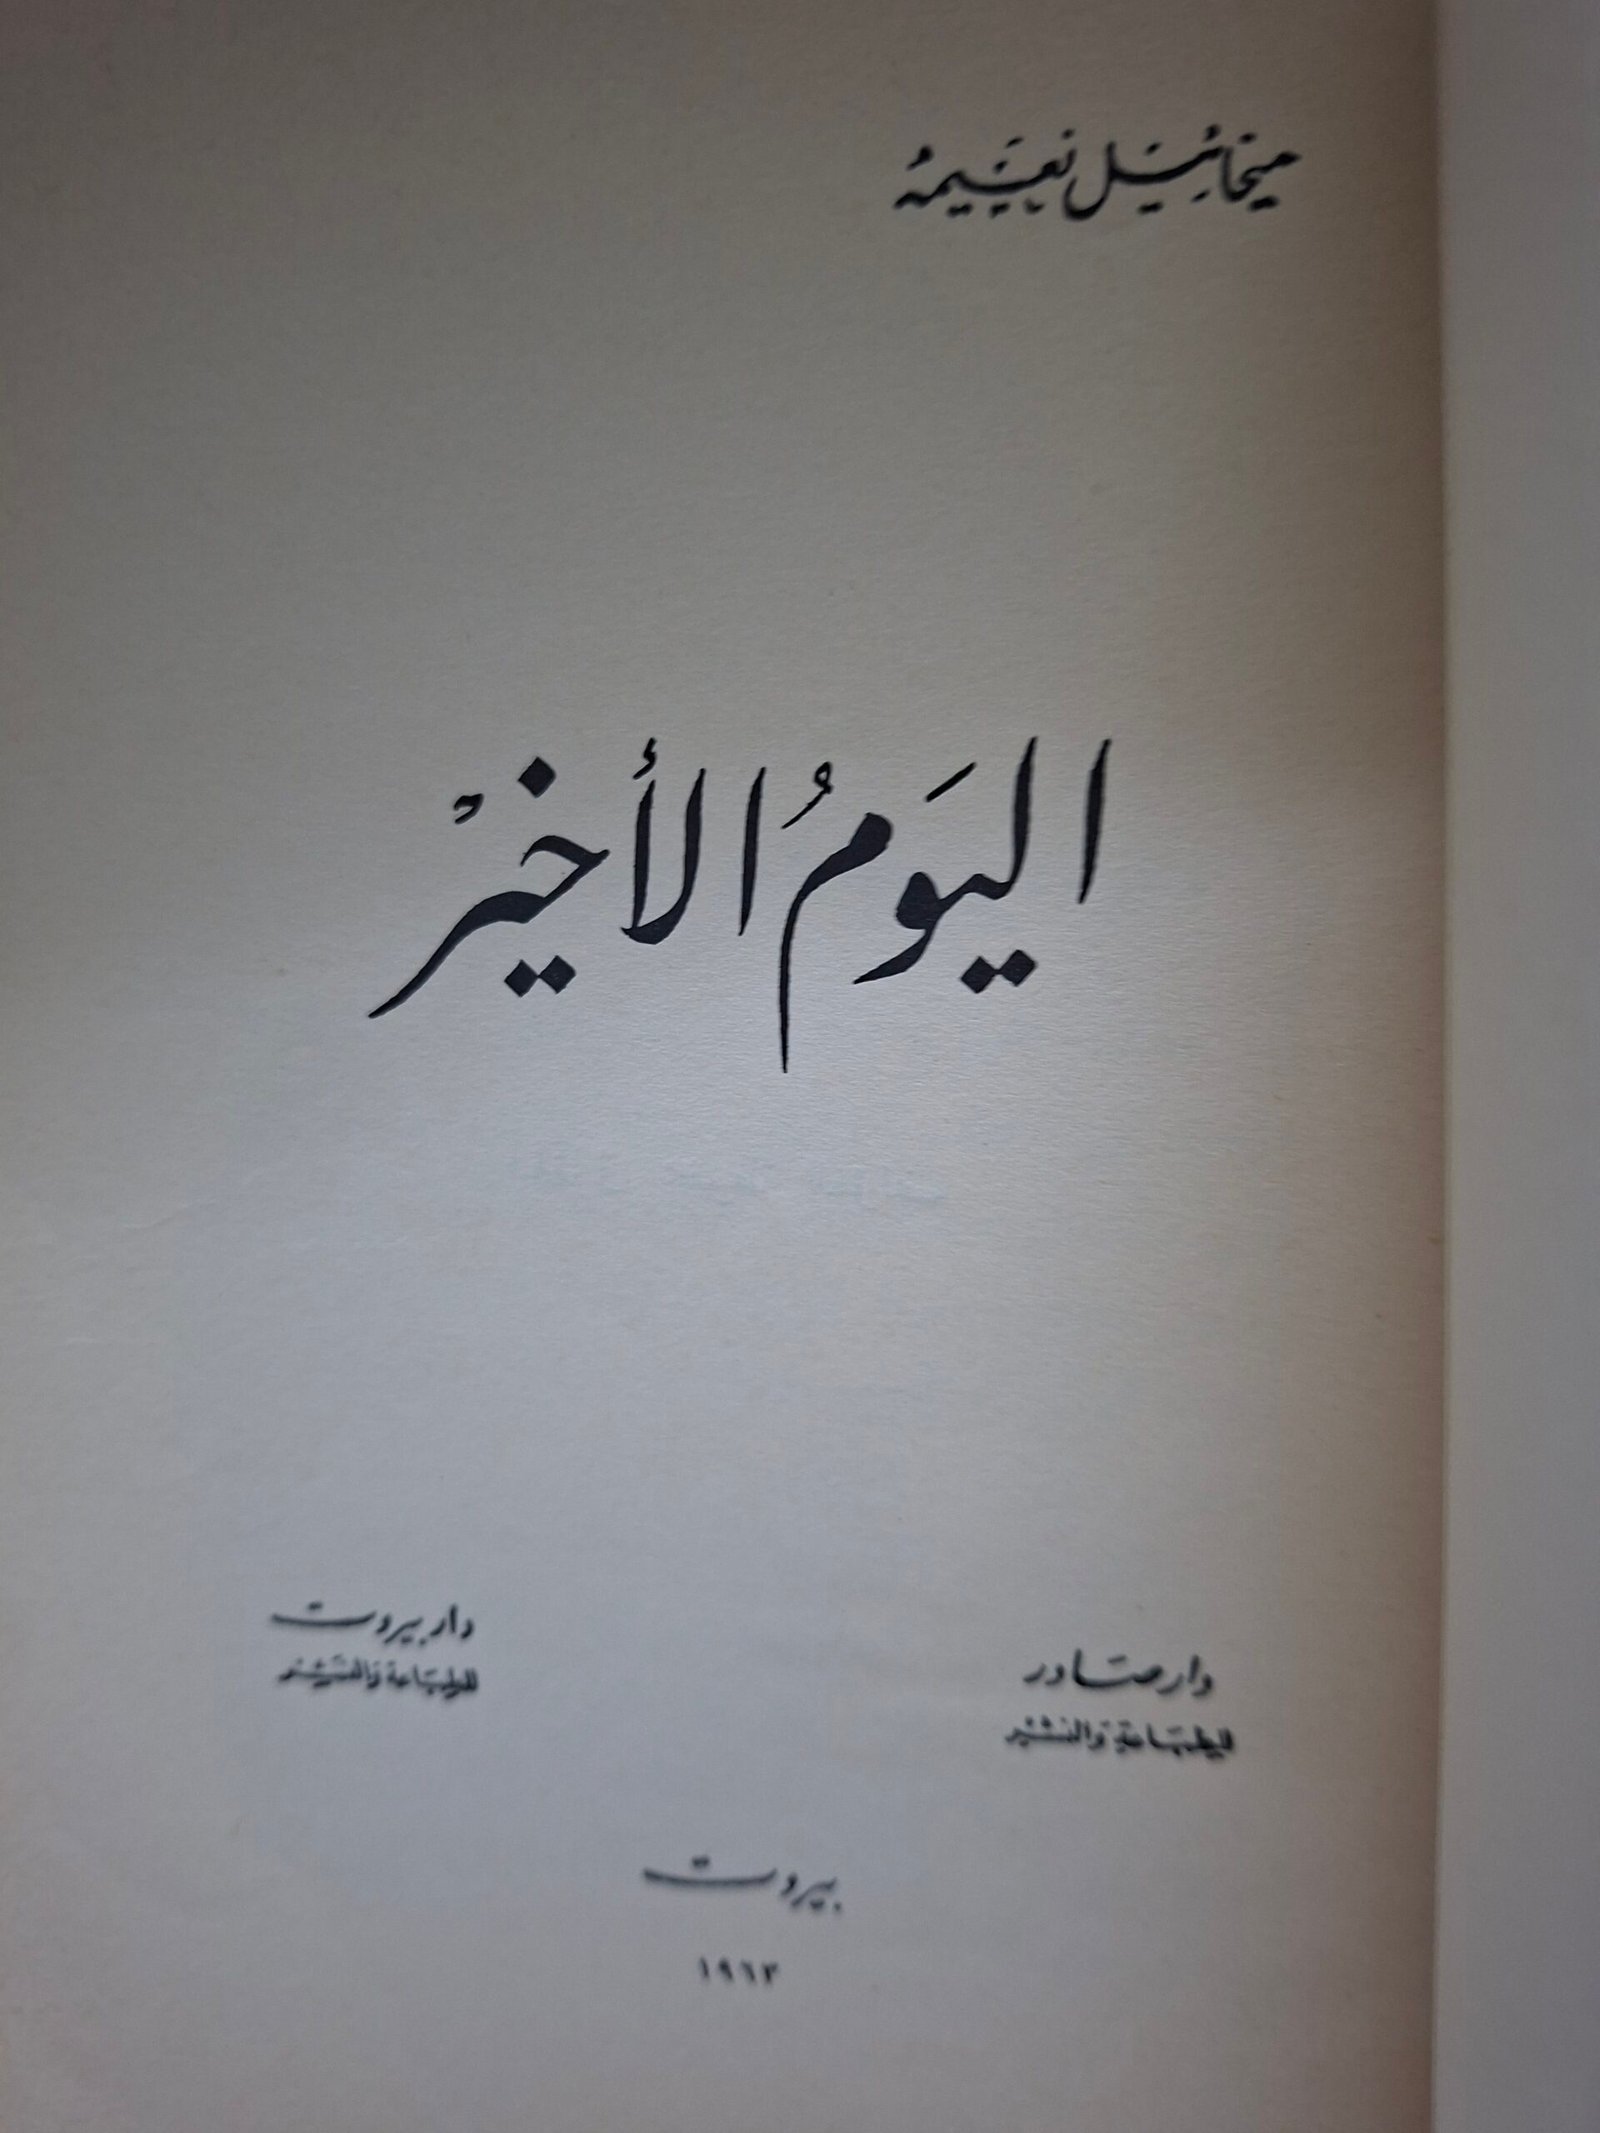 ميخائيل نعيمه
اليَومُ الأخيْر
دار صَادر
للطبَاعة وَالنشْر
دار بيروت
للطبَاعة وَالنشْر
بيروت
١٩٦٣